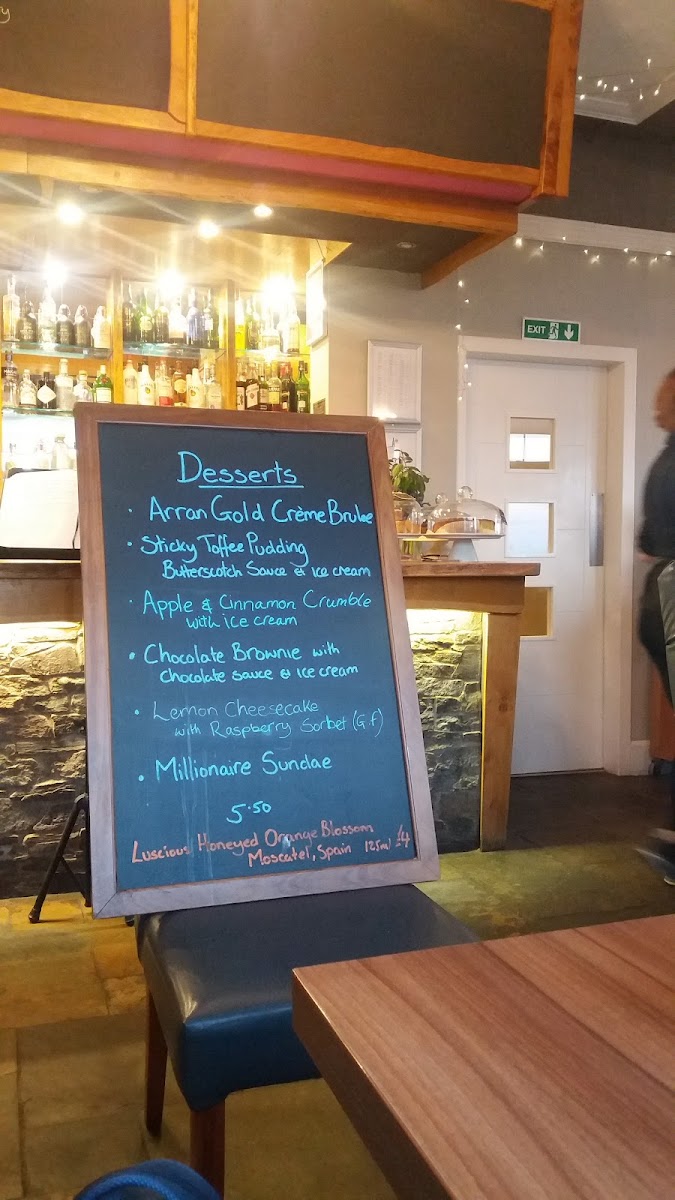 EXIT
Desserts
· Arran Gold Crème Brulee
· Sticky Toffee Pudding
Butterscotch Sauce & Ice cream
· Apple & Cinnamon Crumble
with ice cream
· Chocolate Brownie with
chocolate sauce & Ice cream
· Lemon Cheesecake
with Raspberry Sorbet (G.f)
· Millionaire Sundae
5.50
Luscious Honeyed Orange Blossom
Moscatel, Spain 125ml £4